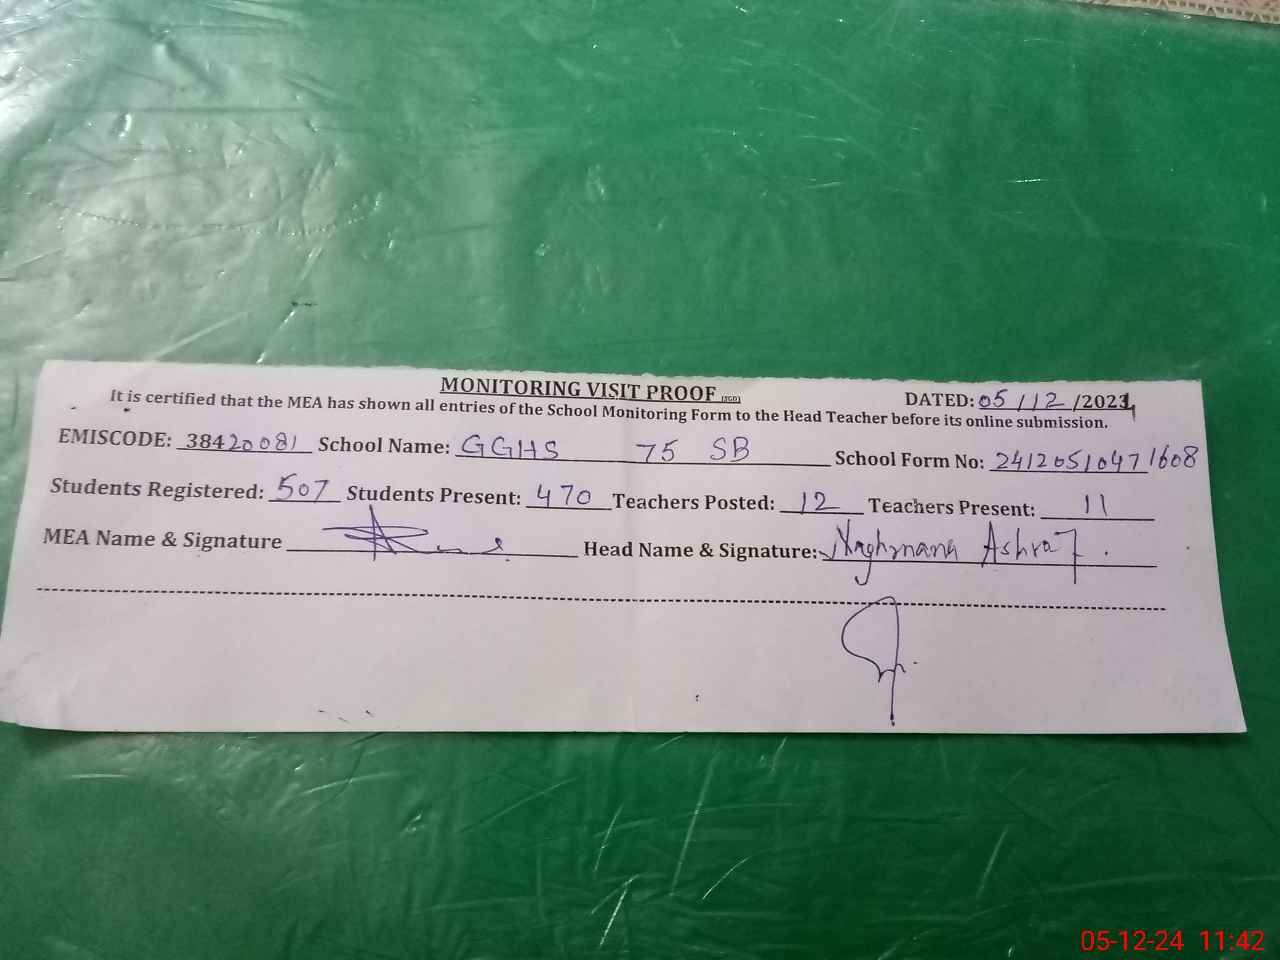 MONITORING VISIT PROOF (SGD)
DATED: 05/12/2024
It is certified that the MEA has shown all entries of the School Monitoring Form to the Head Teacher before its online submission.
EMISCODE: 38420081 School Name: GGHS 75 SB School Form No: 24120510471608
Students Registered: 507 Students Present: 470 Teachers Posted: 12 Teachers Present: 11
MEA Name & Signature Head Name & Signature: Naghmana Ashraf.
05-12-24 11:42